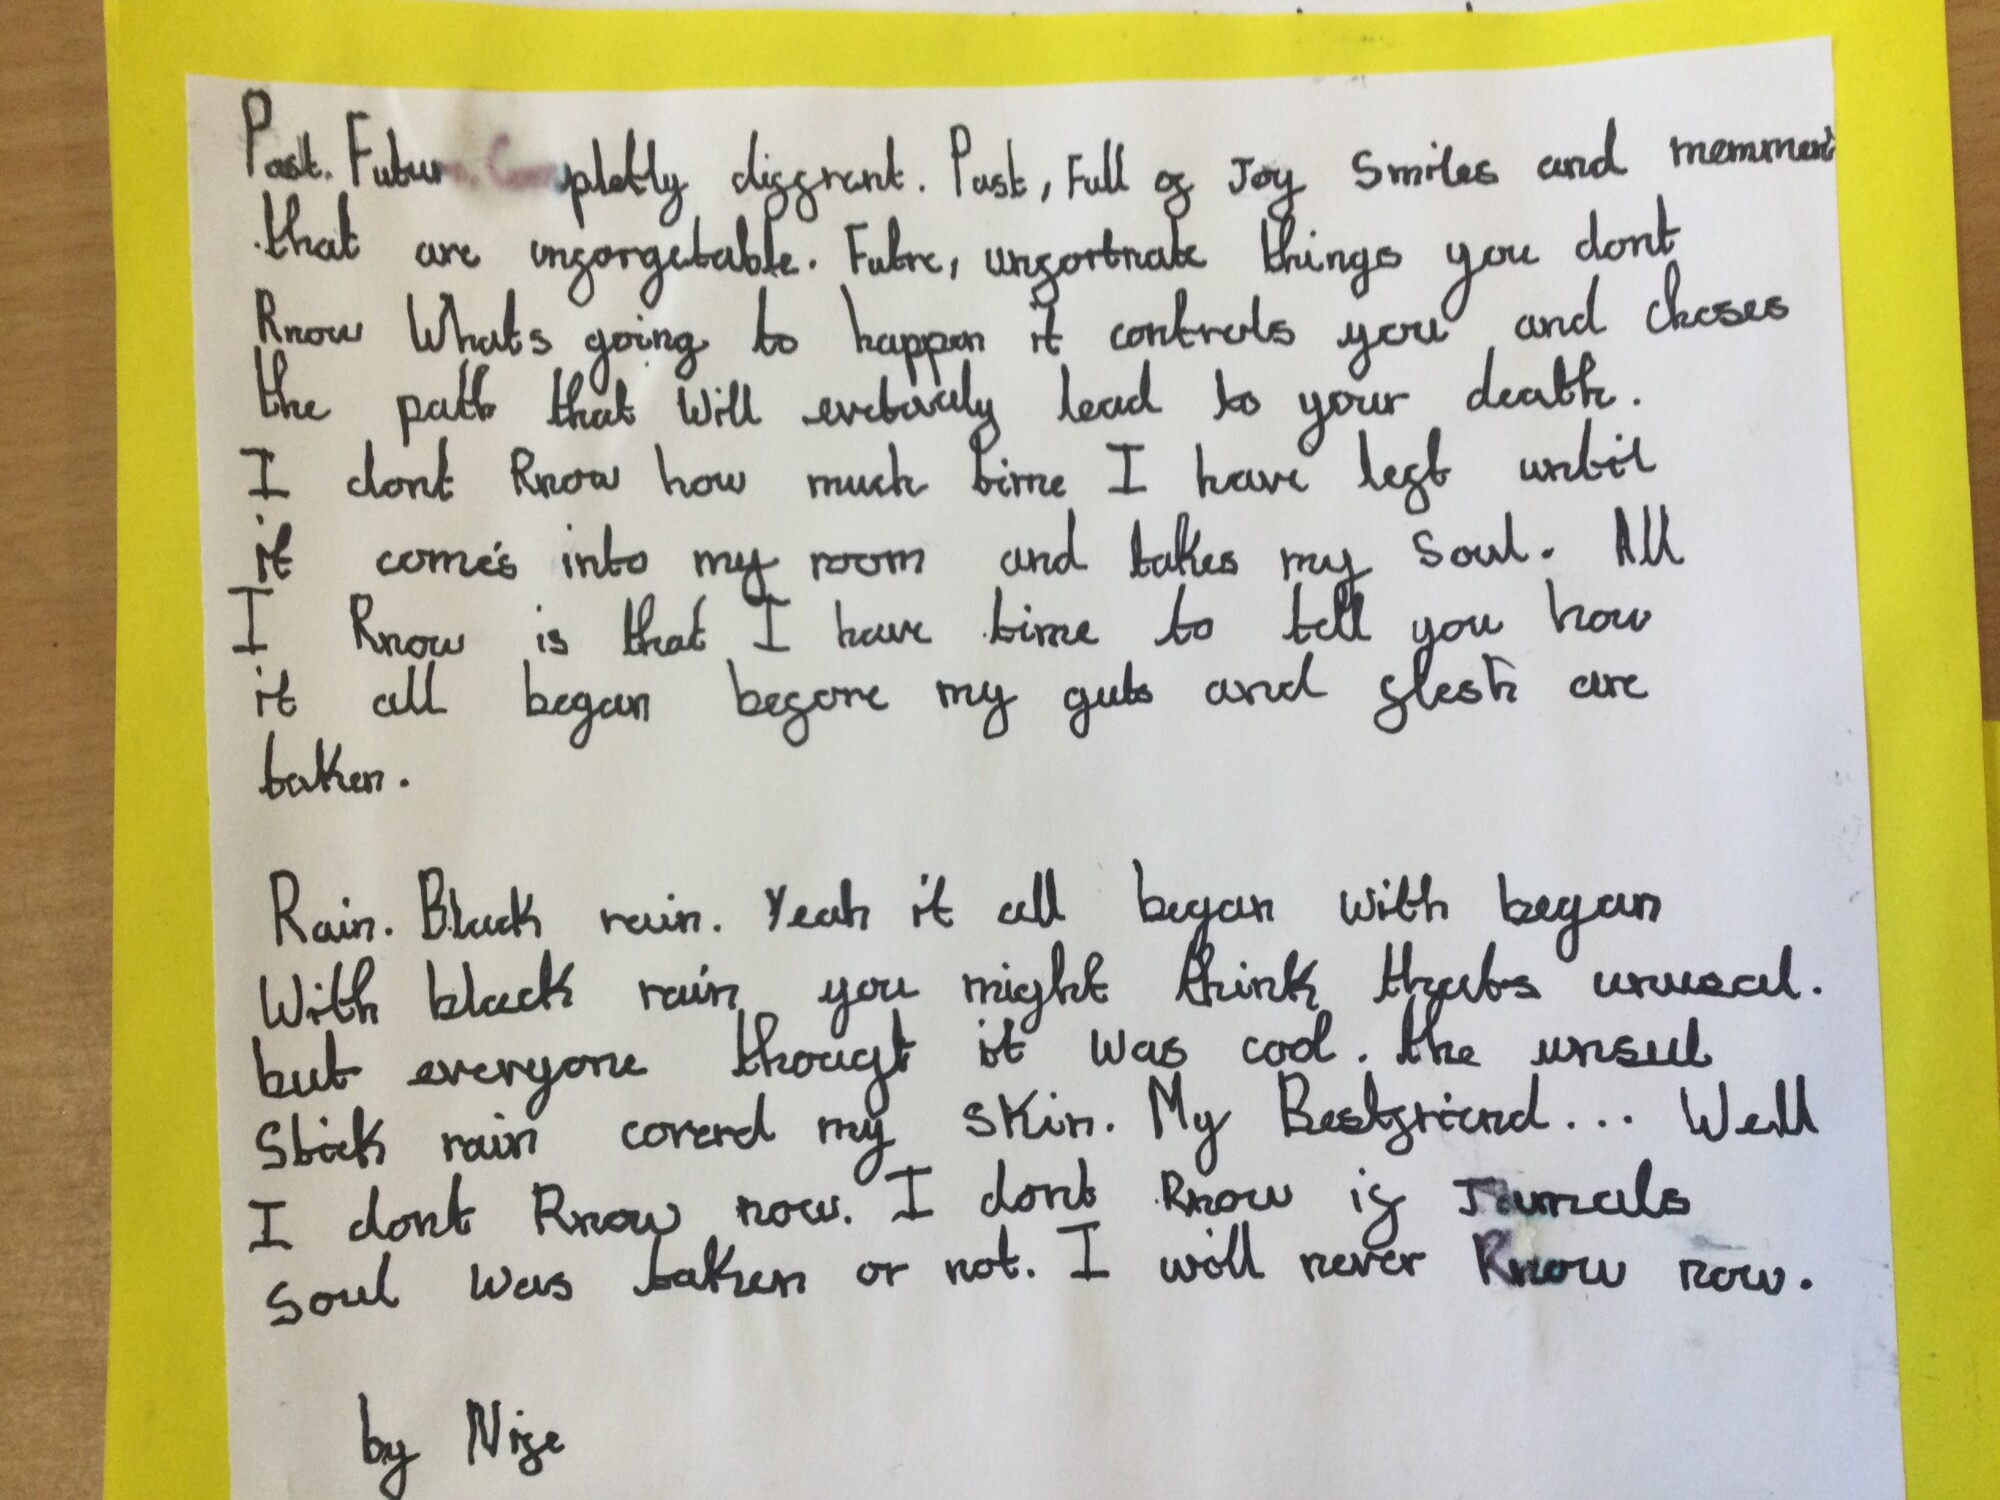 Past. Futur. Completly diffrent. Past, Full of Joy Smiles and
that are unforgetable. Futre, unfortnate things you dont
Know Whats going to happen it controls you and choses
the path that Will lead to your death.
I dont Know how much time I have left until
it come's into my room and takes my Soul. All
I Know is that I have time to tell you how
it all began before my guts and flesh are
taken.
Rain. Black rain. Yeah it all began with began
With black rain you might think thats unusal.
but everyone thougt it was cool. the unsul
Stick rain coverd my skin. My Bestfriend... Well
I dont Know now. I dont Know if Jamals
Soul was taken or not. I will never Know now.
by Nife